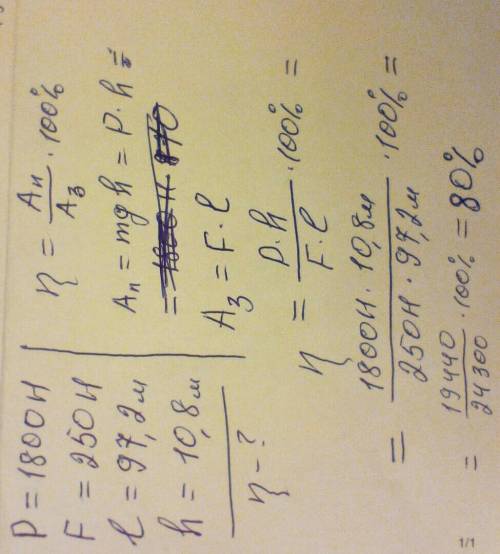 P = 1800 Н
F = 250 Н
l = 97,2 м
h = 10,8 м
η - ?
η = Aп/Aз · 100%
Aп = mgh = P·h =
= 
Aз = F·l
η = P·h/F·l · 100% =
= 1800Н · 10,8м/250Н · 97,2м · 100% =
= 19440/24300 · 100% = 80%
1/1